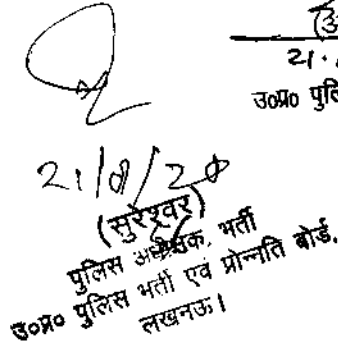 21.
उ०प्र० पुलि
21/8/20
(सुरेश्वर)
पुलिस अधीक्षक, भर्ती
उ०प्र० पुलिस भर्ती एवं प्रोन्नति बोर्ड,
लखनऊ।